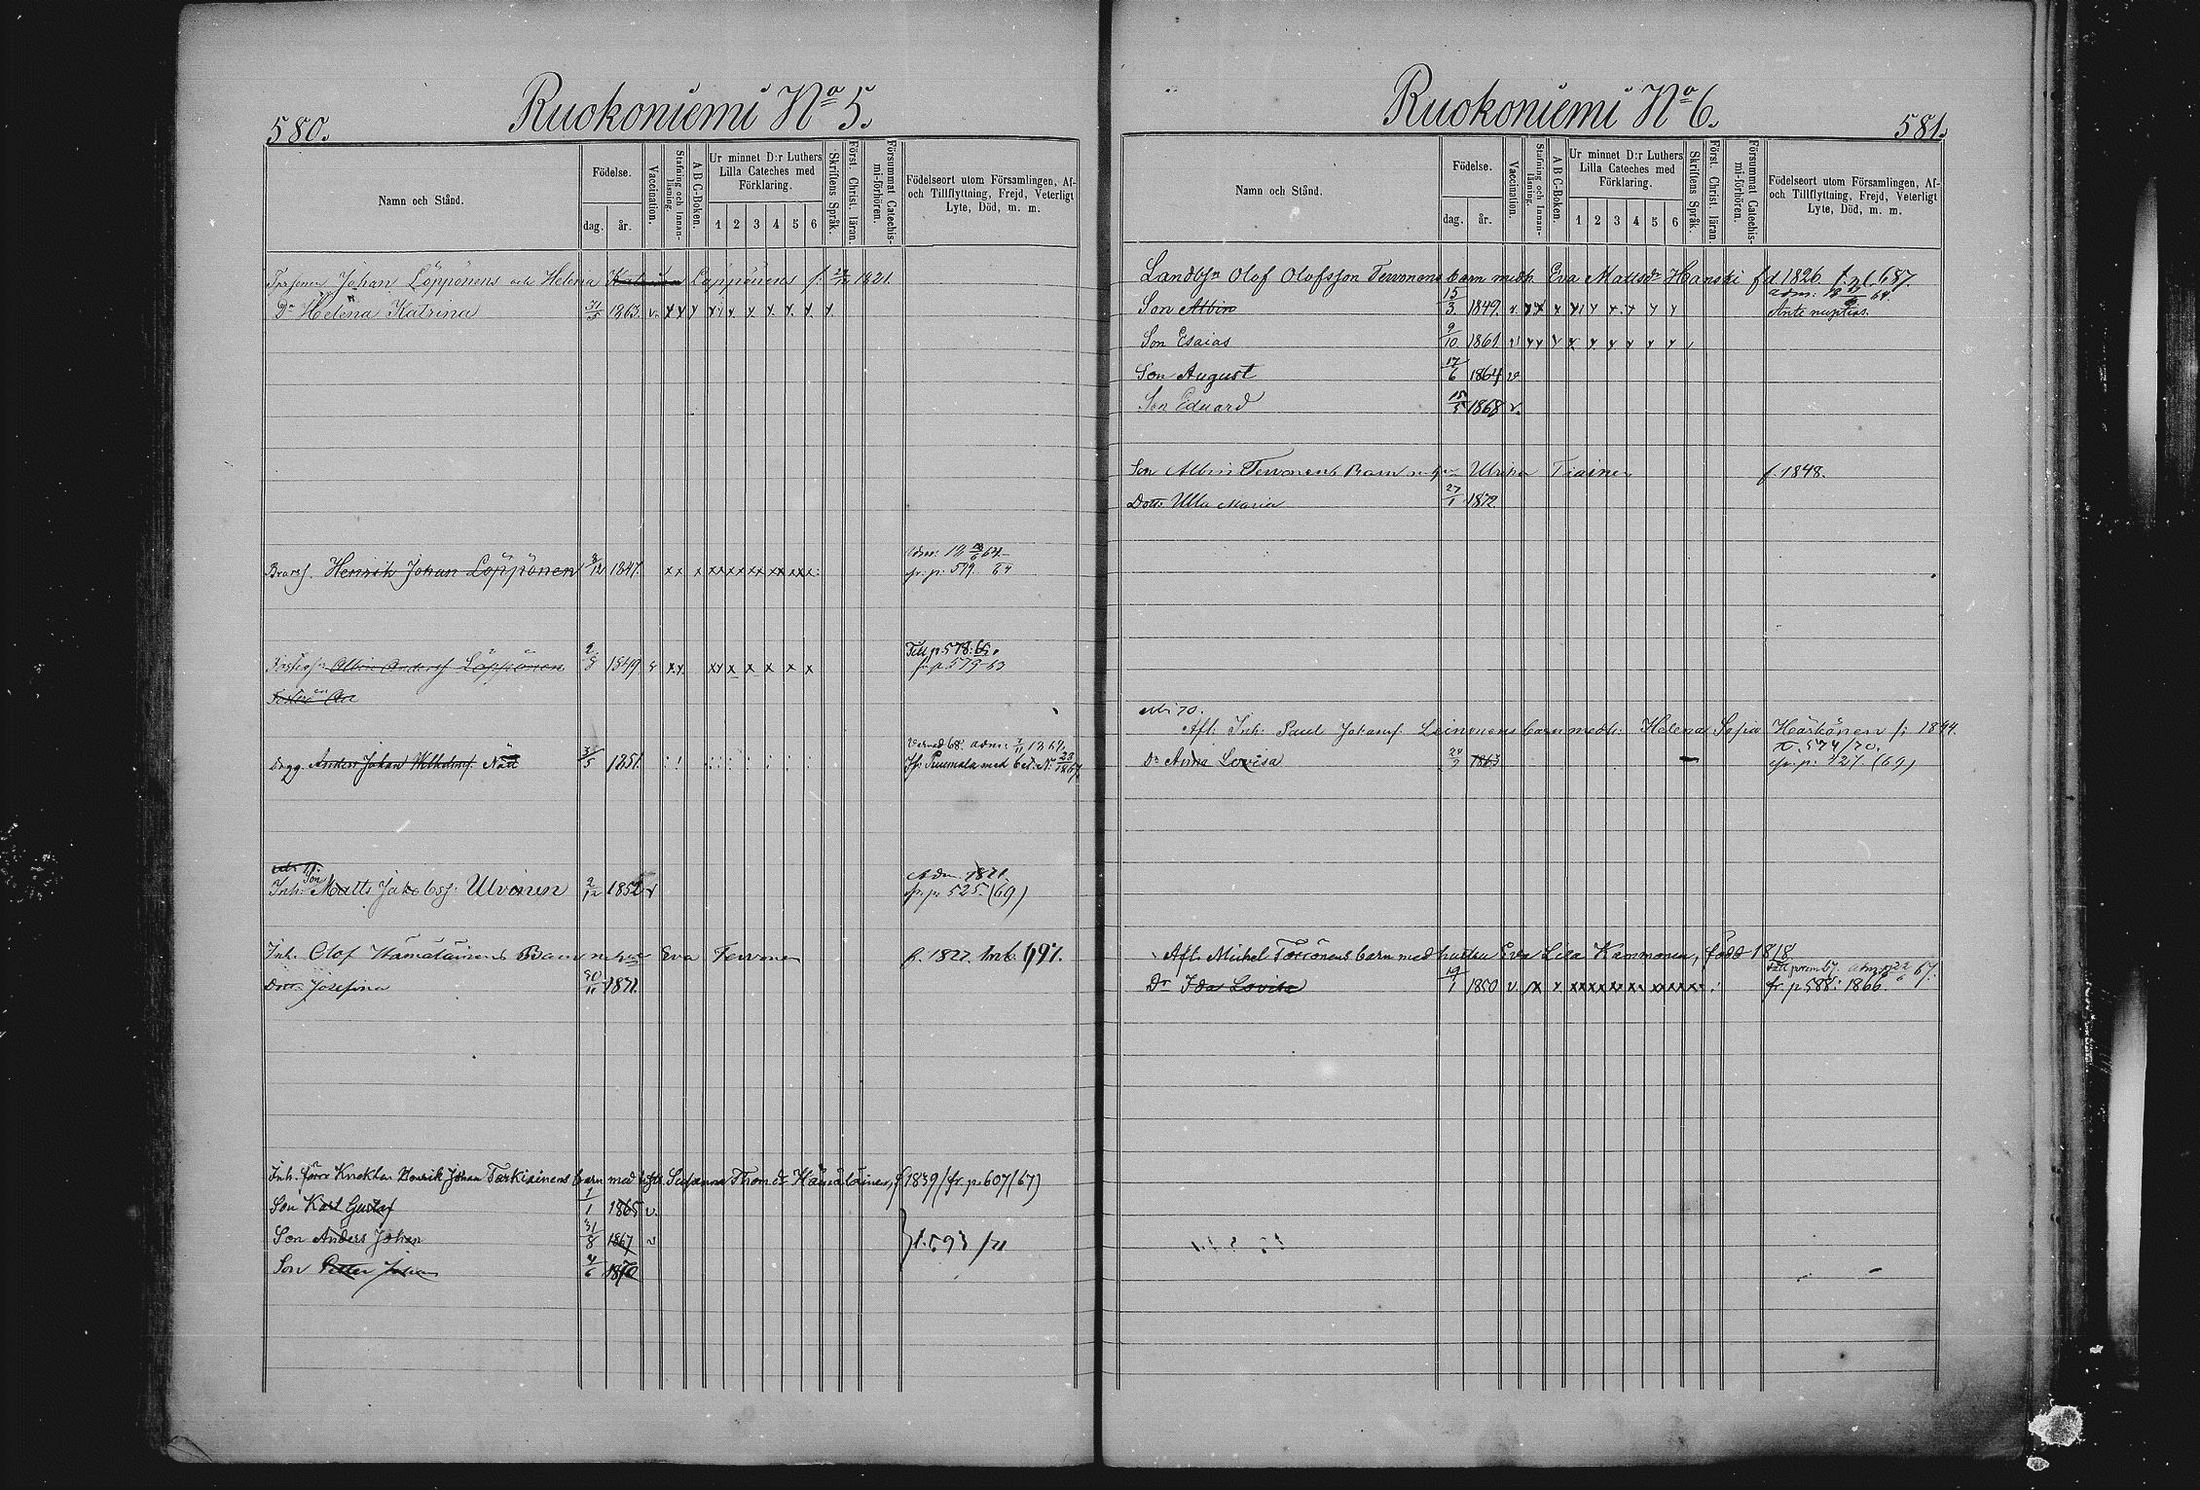 580.
Ruokoniemi No 5.
Namn och Stånd.
Födelse.
dag.
år.
Vaccination.
Stafning och Innanläsning.
A B C-Boken.
Ur minnet D:r Luthers Lilla Cateches med Förklaring.
1 2 3 4 5 6
Skriftens Språk.
Först. Christ. läran.
Försummat Catechismi-förhören.
Födelseort utom Församlingen, Af- och Tillflyttning, Frejd, Veterligt Lyte, Död, m. m.
Johan Löppönens och Helena Löppönens f. 1821.
Dr Helena Katrina 31/5 1863. v.
Brorsf. Henrik Johan Löppönen 1847. Adm: 18 64
fr. p. 579. 64
Albin Andersf Löppönen 1849 Till p. 578. 69.
fr. p 579-63
Anders Johan Wilhelmsf Nätt 1851. adm: 1869.
Puumala med bet. No
Son
Inh. Matts Jakobsf: Ulvinen 2/12 1852 v Adm. 1871.
fr. p. 525. (69)
Inh. Olof Hämäläinens Barn Eva Tervonen f. 1827. 697.
Dottr. Josefina 30/11 1871.
Inh. förre Knekten Henrik Johan Tarkiainens barn med Susanna Thom dr Hämäläinen, f 1839 (fr. p. 607 (67)
Son Karl Gustaf 1/1 1865 v.
Son Anders Johan 31/8 1867 v
Son Petter Johan 1870
} t. 593 / 71
Ruokoniemi No 6.
581.
Namn och Stånd.
Födelse.
dag.
år.
Vaccination.
Stafning och Innanläsning.
A B C-Boken.
Ur minnet D:r Luthers Lilla Cateches med Förklaring.
1 2 3 4 5 6
Skriftens Språk.
Först. Christ. läran.
Försummat Catechismi-förhören.
Födelseort utom Församlingen, Af- och Tillflyttning, Frejd, Veterligt Lyte, Död, m. m.
Landbn Olof Olofsson Tervonens barn medh. Eva Mattsdr Hanski fd 1826. 687.
Son Albin 15/3 1849. Ante nuptias.
Son Esaias 9/10 1861
Son August 17/6 1864 v
Son Eduard 15/5 1868 v.
Son Albin Tervonens Barn Ulrika Tiainen f. 1848.
Dottr Ulla Maria 27/1 1872
Afl. Inh. Paul Johansf. Leinonens barn medh: Helena Sofia Härkönen f: 1844.
T. 574/70.
Dr Anna Lovisa 1863 fr. p. 721. (69)
Afl. Michel Torronens barn med hustru Eva Lisa Kammonen, född 1818
Dr Ida Lovisa 19/1 1850 v fr p 588: 1866